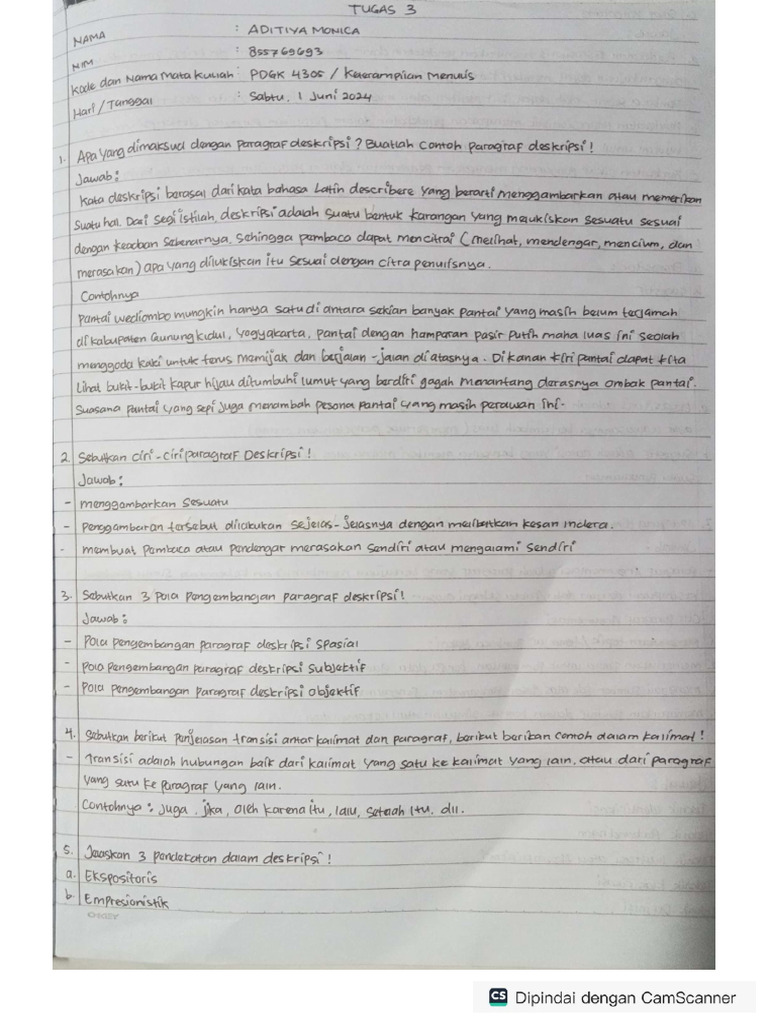 TUGAS 3
NAMA : ADITIYA MONICA
NIM : 855769693
Kode dan Nama Mata Kuliah : PDGK 4305 / Keterampilan Menulis
Hari / Tanggal : Sabtu, 1 Juni 2024
1. Apa yang dimaksud dengan paragraf deskripsi? Buatlah contoh paragraf deskripsi!
Jawab :
Kata deskripsi berasal dari kata bahasa Latin describere yang berarti menggambarkan atau memerikan
suatu hal. Dari segi istilah, deskripsi adalah suatu bentuk karangan yang melukiskan sesuatu sesuai
dengan keadaan sebenarnya, sehingga pembaca dapat mencitrai (melihat, mendengar, mencium, dan
merasakan) apa yang dilukiskan itu sesuai dengan citra penulisnya.
Contohnya
Pantai wediombo mungkin hanya satu di antara sekian banyak pantai yang masih belum terjamah
di kabupaten Gunung kidul, Yogyakarta, pantai dengan hamparan pasir putih maha luas ini seolah
menggoda kaki untuk terus memijak dan berjalan-jalan di atasnya. Di kanan kiri pantai dapat kita
lihat bukit-bukit kapur hijau ditumbuhi lumut yang berdiri gagah menantang derasnya ombak pantai.
Suasana pantai yang sepi juga menambah pesona pantai yang masih perawan ini.
2. Sebutkan ciri-ciri paragraf Deskripsi!
Jawab :
- menggambarkan sesuatu
- Penggambaran tersebut dilakukan sejelas-jelasnya dengan melibatkan kesan indera.
- membuat pembaca atau pendengar merasakan sendiri atau mengalami sendiri
3. Sebutkan 3 pola pengembangan paragraf deskripsi!
Jawab :
- Pola pengembangan paragraf deskripsi spasial
- Pola pengembangan paragraf deskripsi subjektif
- Pola pengembangan paragraf deskripsi objektif
4. Sebutkan berikut penjelasan transisi antar kalimat dan paragraf, berikut berikan contoh dalam kalimat!
- Transisi adalah hubungan baik dari kalimat yang satu ke kalimat yang lain, atau dari paragraf
yang satu ke paragraf yang lain.
Contohnya : juga, jika, oleh karena itu, lalu, setelah itu, dll.
5. Jelaskan 3 pendekatan dalam deskripsi!
a. Ekspositoris
b. Empresionistik
CS Dipindai dengan CamScanner